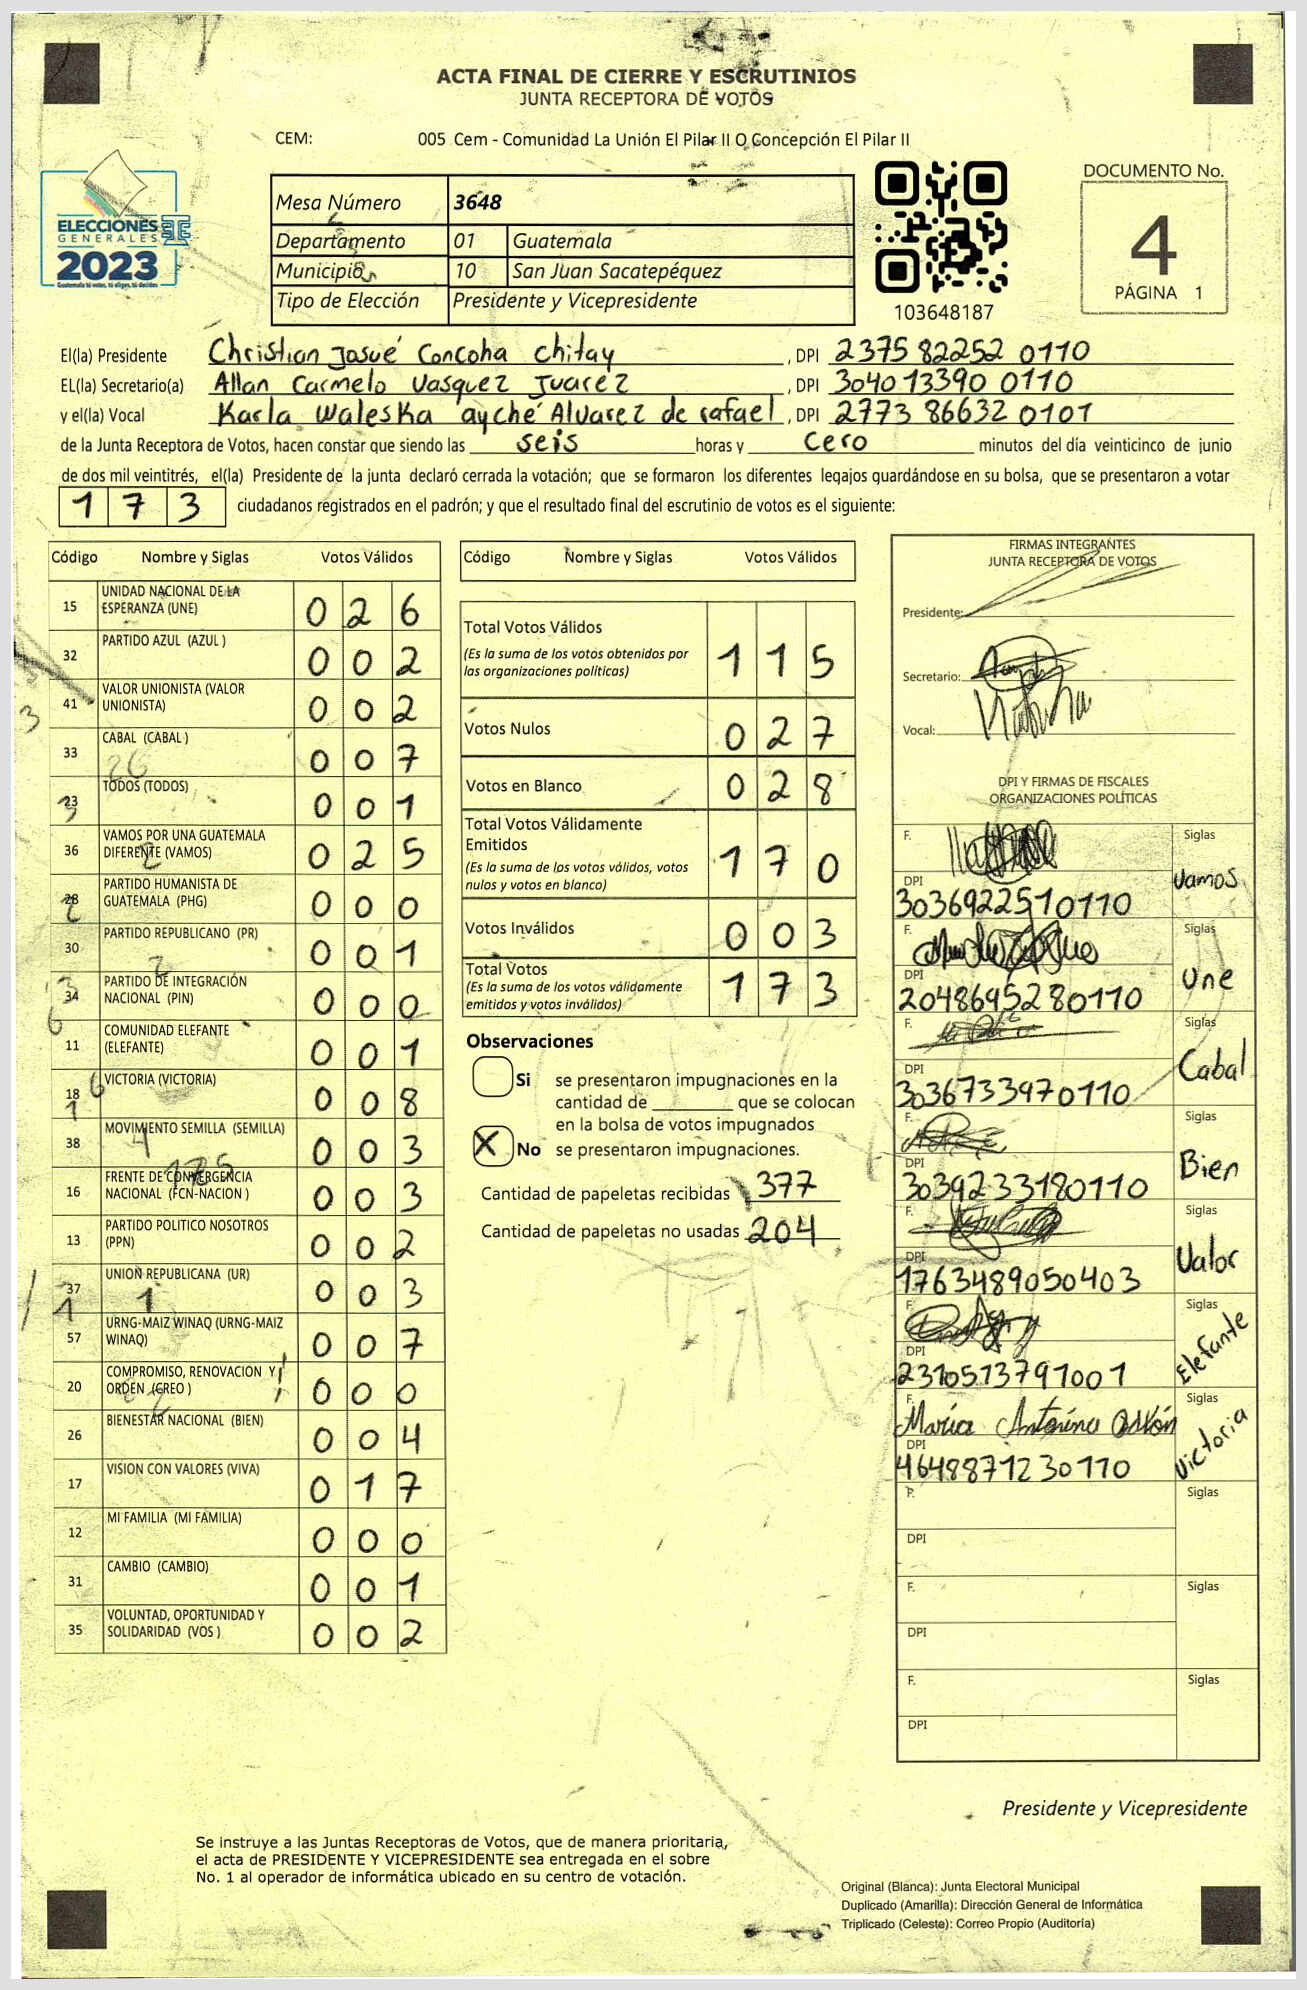 ACTA FINAL DE CIERRE Y ESCRUTINIOS
JUNTA RECEPTORA DE VOTOS
CEM: 005 Cem - Comunidad La Unión El Pilar II O Concepción El Pilar II
ELECCIONES
GENERALES
2023
Guatemala tú votas, tú eliges, tú decides
Mesa Número 3648
Departamento 01 Guatemala
Municipio 10 San Juan Sacatepéquez
Tipo de Elección Presidente y Vicepresidente
103648187
DOCUMENTO No.
4
PÁGINA 1
El(la) Presidente Christian Josué Concoha Chitay, DPI 2375 82252 0110
EL(la) Secretario(a) Allan Carmelo Vasquez Juarez, DPI 3040 13390 0110
y el(la) Vocal Karla Waleska ayché Alvarez de rafael, DPI 2773 86632 0101
de la Junta Receptora de Votos, hacen constar que siendo las seis horas y cero minutos del día veinticinco de junio
de dos mil veintitrés, el(la) Presidente de la junta declaró cerrada la votación; que se formaron los diferentes legajos guardándose en su bolsa, que se presentaron a votar
173 ciudadanos registrados en el padrón; y que el resultado final del escrutinio de votos es el siguiente:
Código Nombre y Siglas Votos Válidos
15 UNIDAD NACIONAL DE LA ESPERANZA (UNE) 026
32 PARTIDO AZUL (AZUL ) 002
41 VALOR UNIONISTA (VALOR UNIONISTA) 002
33 CABAL (CABAL ) 007
23 TODOS (TODOS) 001
36 VAMOS POR UNA GUATEMALA DIFERENTE (VAMOS) 025
28 PARTIDO HUMANISTA DE GUATEMALA (PHG) 000
30 PARTIDO REPUBLICANO (PR) 001
34 PARTIDO DE INTEGRACIÓN NACIONAL (PIN) 000
11 COMUNIDAD ELEFANTE (ELEFANTE) 001
18 VICTORIA (VICTORIA) 008
38 MOVIMIENTO SEMILLA (SEMILLA) 003
16 FRENTE DE CONVERGENCIA NACIONAL (FCN-NACION ) 003
13 PARTIDO POLITICO NOSOTROS (PPN) 002
37 UNION REPUBLICANA (UR) 003
57 URNG-MAIZ WINAQ (URNG-MAIZ WINAQ) 007
20 COMPROMISO, RENOVACION Y ORDEN (CREO ) 000
26 BIENESTAR NACIONAL (BIEN) 004
17 VISION CON VALORES (VIVA) 017
12 MI FAMILIA (MI FAMILIA) 000
31 CAMBIO (CAMBIO) 001
35 VOLUNTAD, OPORTUNIDAD Y SOLIDARIDAD (VOS ) 002
Código Nombre y Siglas Votos Válidos
Total Votos Válidos 115
(Es la suma de los votos obtenidos por
las organizaciones políticas)
Votos Nulos 027
Votos en Blanco 028
Total Votos Válidamente
Emitidos 170
(Es la suma de los votos válidos, votos
nulos y votos en blanco)
Votos Inválidos 003
Total Votos 173
(Es la suma de los votos válidamente
emitidos y votos inválidos)
Observaciones
Si se presentaron impugnaciones en la
cantidad de ________ que se colocan
en la bolsa de votos impugnados
X No se presentaron impugnaciones.
Cantidad de papeletas recibidas 377
Cantidad de papeletas no usadas 204
FIRMAS INTEGRANTES
JUNTA RECEPTORA DE VOTOS
Presidente:
Secretario:
Vocal:
DPI Y FIRMAS DE FISCALES
ORGANIZACIONES POLÍTICAS
F. Siglas Vamos
DPI 3036922510110
F. Siglas Une
DPI 2048695280110
F. Siglas Cabal
DPI 3036733970110
F. Siglas Bien
DPI 3039233180110
F. Siglas Valor
DPI 1763489050403
F. Siglas Elefante
DPI 2310513791001
F. María Antonina Siglas Victoria
DPI 4648871230110
F. Siglas
DPI
F. Siglas
DPI
F. Siglas
DPI
Presidente y Vicepresidente
Se instruye a las Juntas Receptoras de Votos, que de manera prioritaria,
el acta de PRESIDENTE Y VICEPRESIDENTE sea entregada en el sobre
No. 1 al operador de informática ubicado en su centro de votación.
Original (Blanca): Junta Electoral Municipal
Duplicado (Amarilla): Dirección General de Informática
Triplicado (Celeste): Correo Propio (Auditoría)